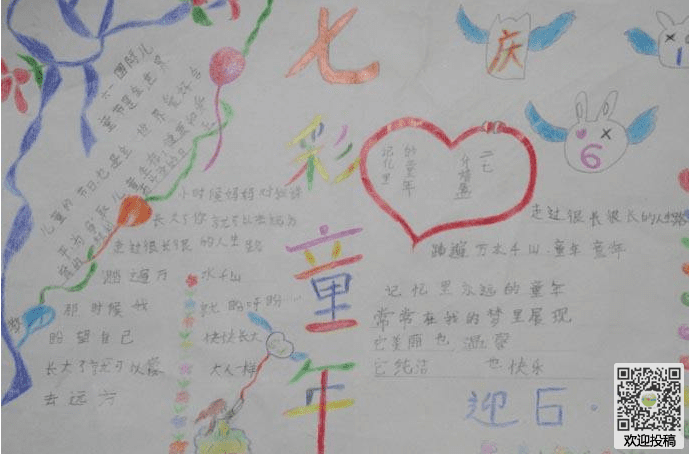 七彩童年
庆
1
6
六一国际儿
童节是全世界
儿童的节日也是全世界爱好和
小时候妈妈对我讲
长大了你就可以去远方
走过很长很长的人生路
踏遍万水千山
那时候我就盼呀盼
盼望自己快快长大
长大了就可以像大人一样
去远方
记忆里
的童年
走过很长很长的人生路
踏遍万水千山·童年童年
记忆里永远的童年
常常在我的梦里展现
它美丽也温馨
它纯洁也快乐
迎6·
欢迎投稿